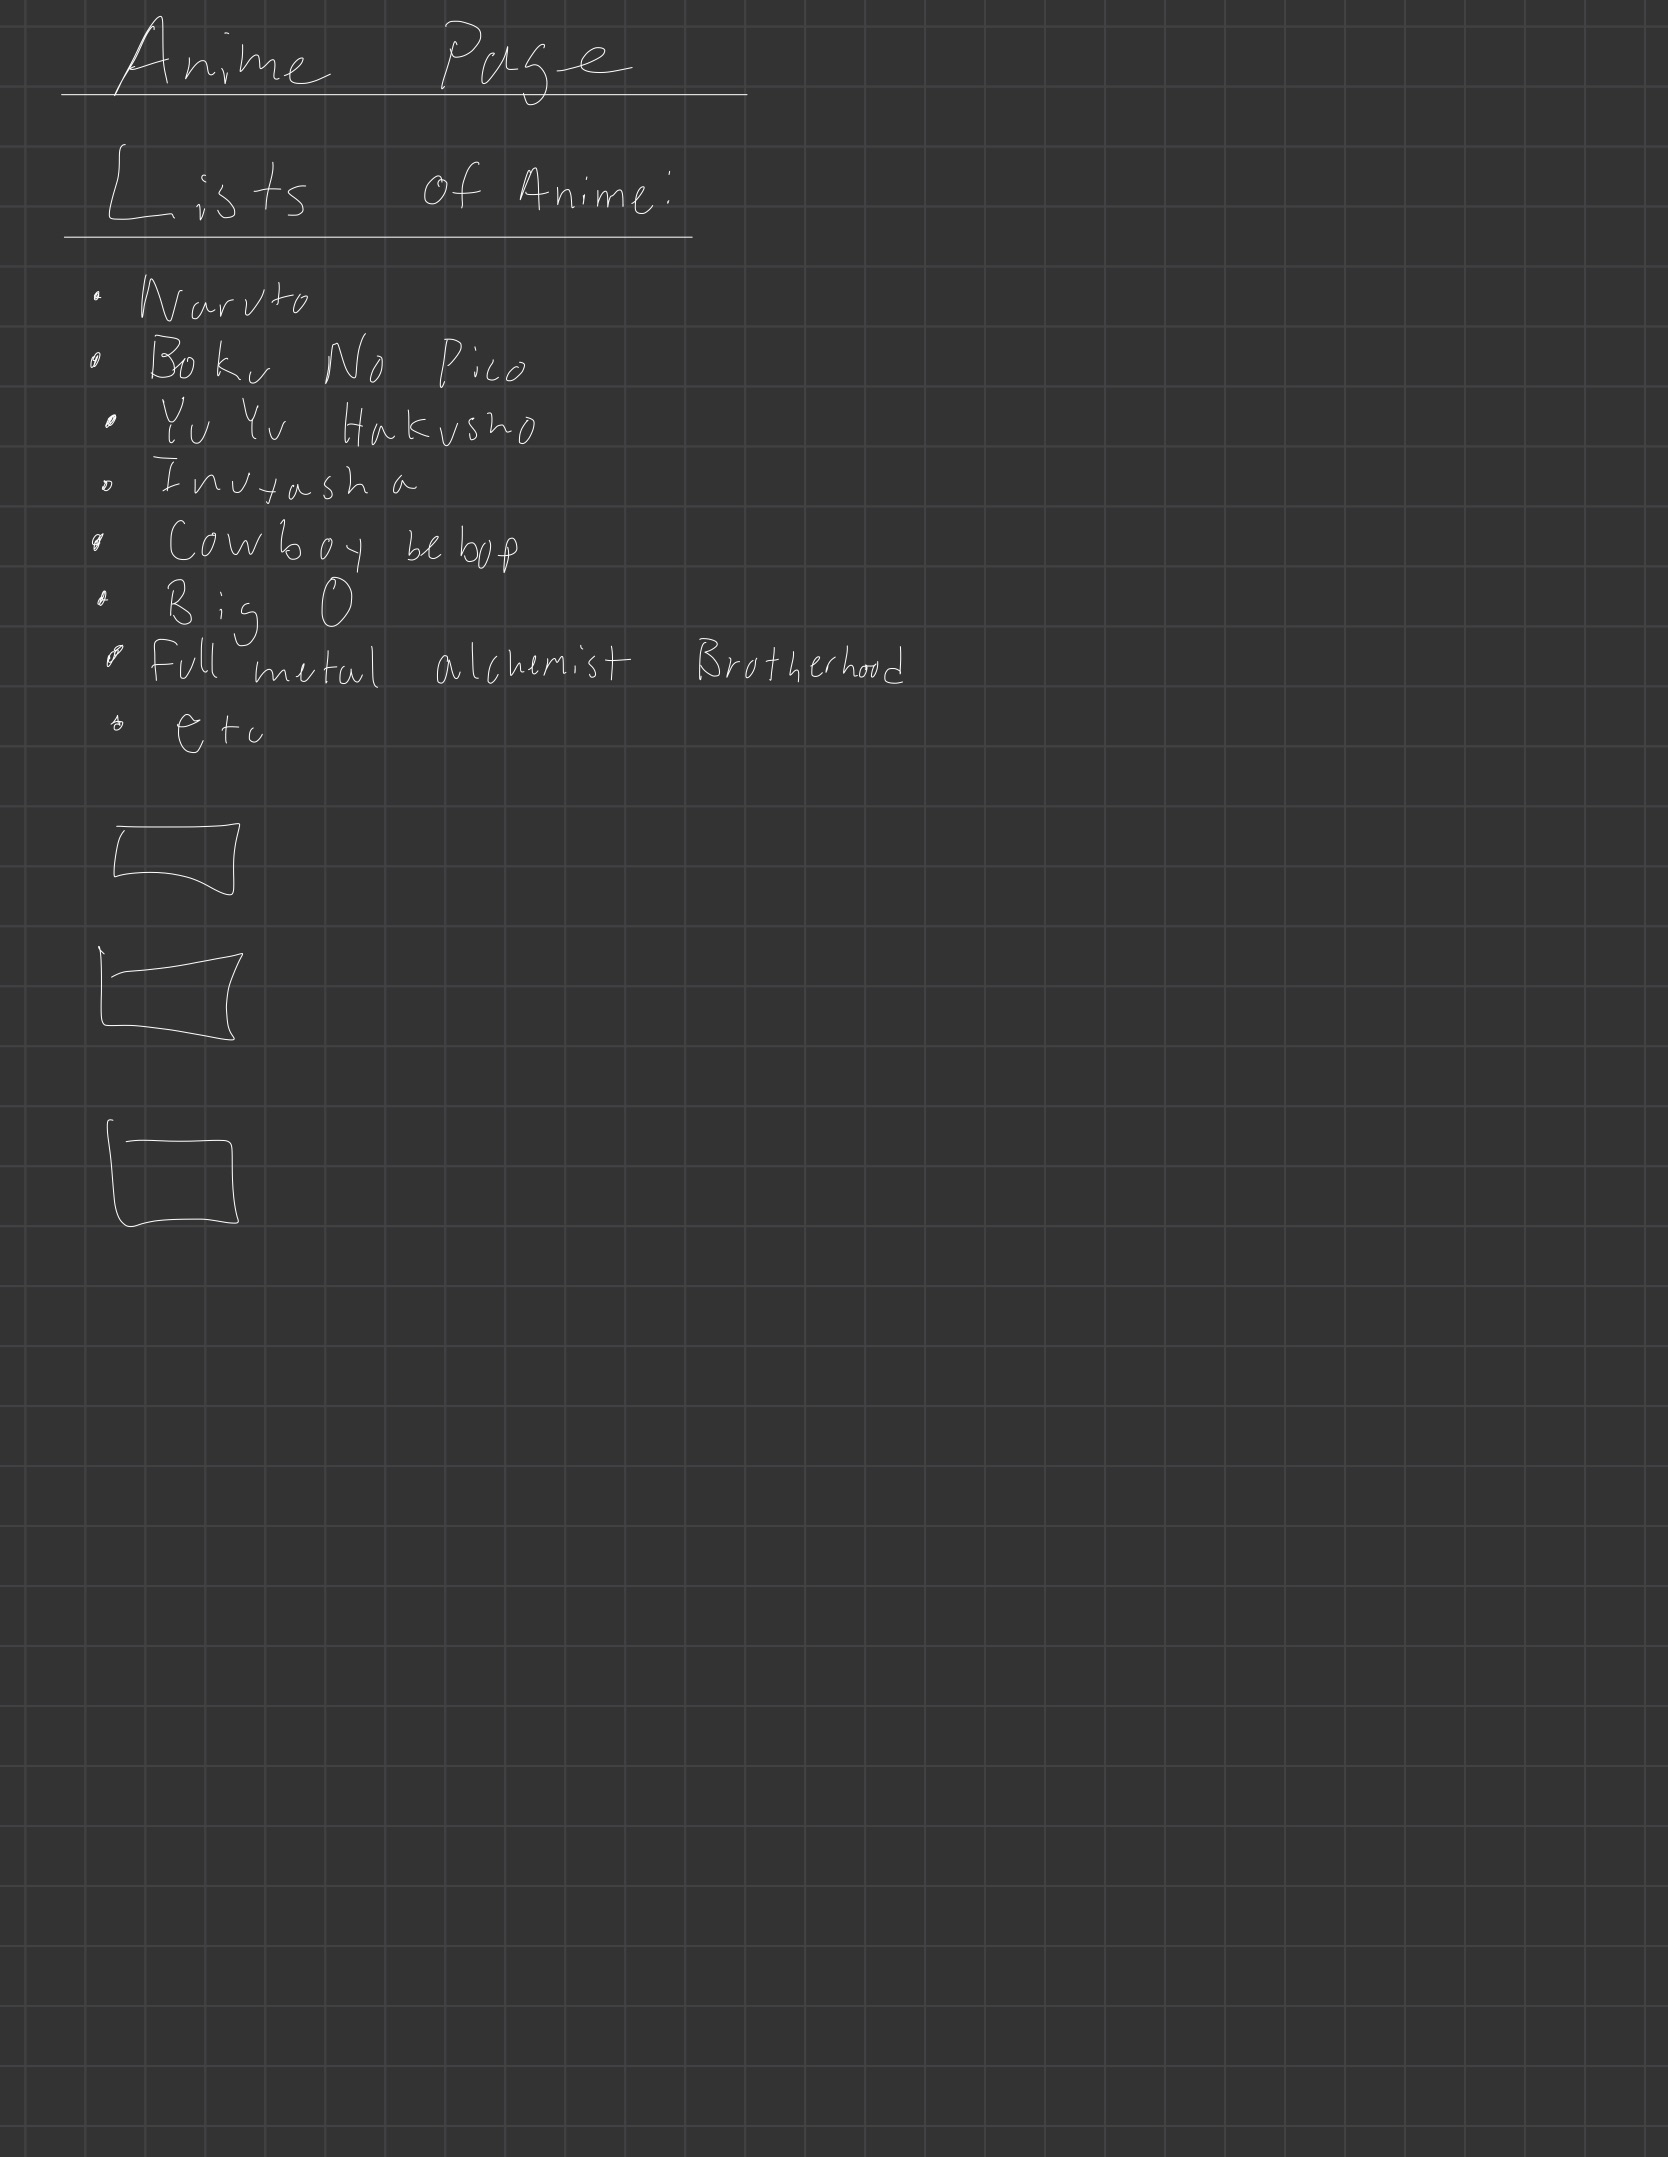 Anime Page
Lists of Anime:
• Naruto
• Boku No Pico
• Yu Yu Hakusho
• Inuyasha
• Cowboy bebop
• Big O
• Full metal alchemist Brotherhood
• etc